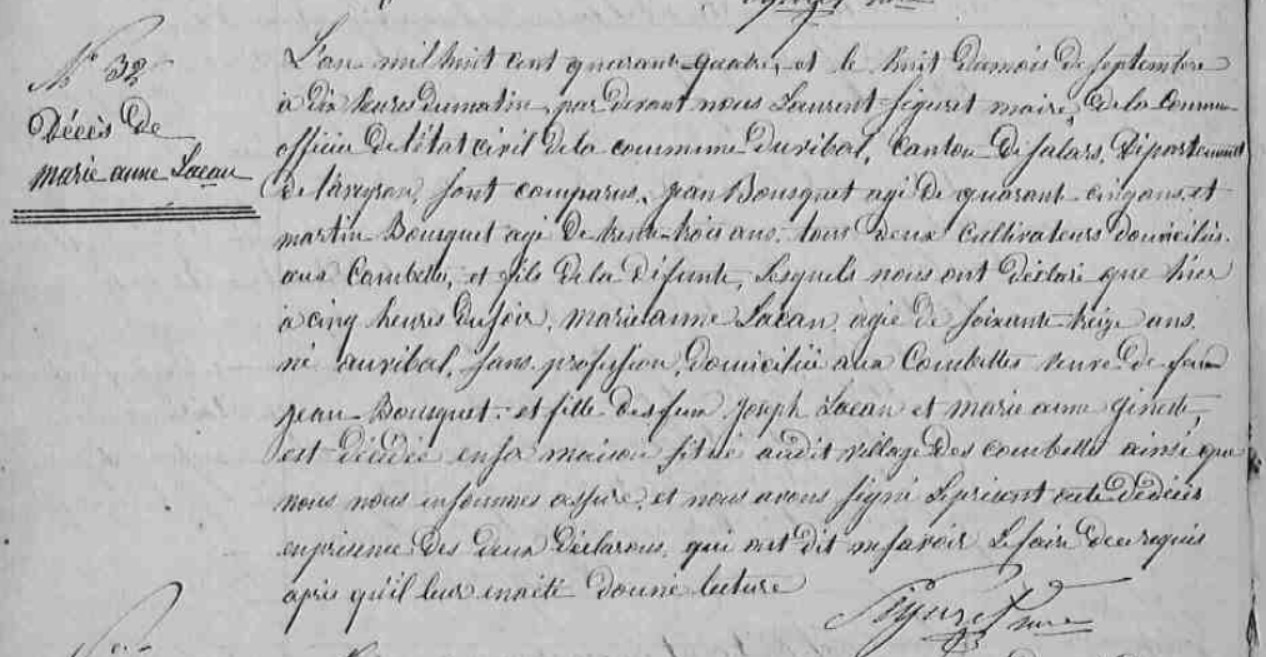 N° 32
Décès de
marie anne Lacan
L'an mil huit cent quarante-quatre, et le huit du mois de septembre
à dix heures du matin, par devant nous Laurent Séguret maire, de la commune
officier de l'état civil de la commune du vibal, Canton de salars, Département
de l'aveyron, sont comparus, jean Bousquet agé de quarante-cinq ans, et
martin Bousquet agé de trente-trois ans, tous deux cultivateurs domiciliés
aux Combettes, et fils de la défunte, lesquels nous ont déclaré que hier
à cinq heures du soir, marie anne Lacan, agée de soixante-treize ans,
né au vibal, sans profession, domiciliée aux Combettes veuve de feu
jean Bousquet, et fille des feux joseph Lacan et marie anne ginesté,
est décédée en sa maison situé audit village des combettes ainsi que
nous nous en sommes assuré, et nous avons signé le présent acte de décès
en présence des deux déclarans, qui ont dit ne savoir le faire de ce requis
après qu'il leur en a été donné lecture
Séguret maire